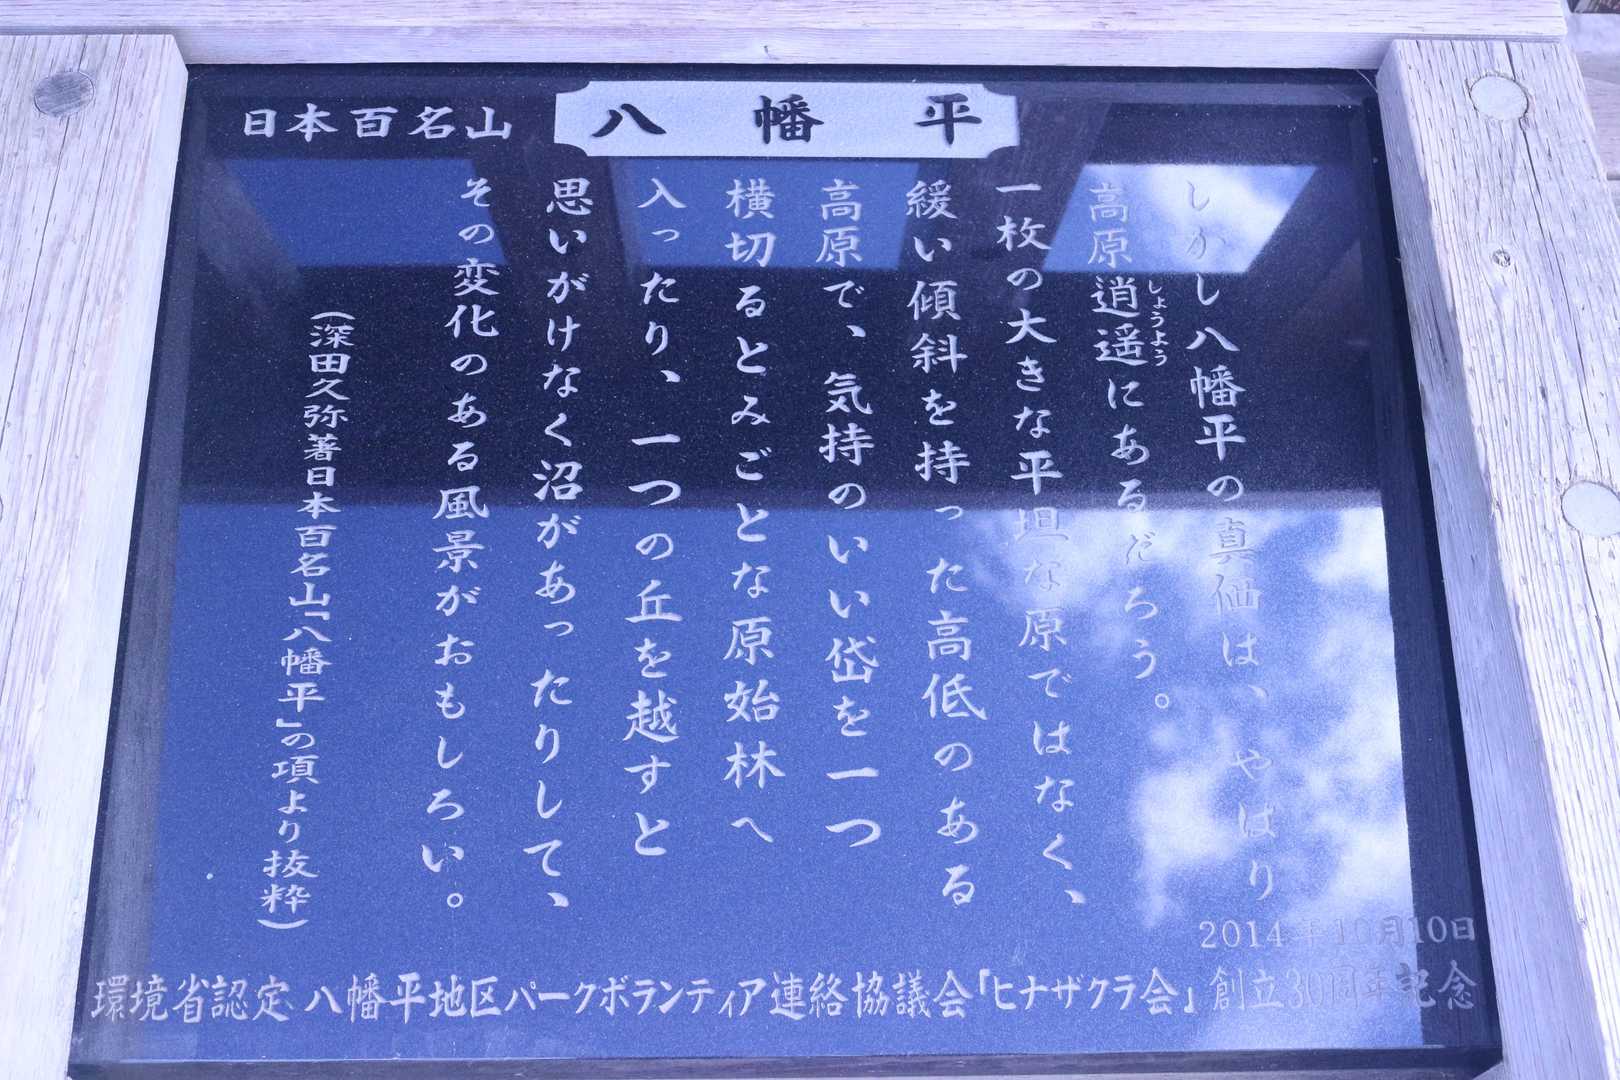 日本百名山 八幡平
しかし八幡平の真価は、やはり
高原逍遥にあるだろう。
しょうよう
一枚の大きな平坦な原ではなく、
緩い傾斜を持った高低のある
高原で、気持のいい岱を一つ
横切るとみごとな原始林へ
入ったり、一つの丘を越すと
思いがけなく沼があったりして、
その変化のある風景がおもしろい。
(深田久弥著日本百名山「八幡平」の項より抜粋)
2014年10月10日
環境省認定 八幡平地区パークボランティア連絡協議会「ヒナザクラ会」創立30周年記念